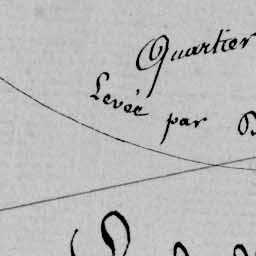 Quartier
Levée par